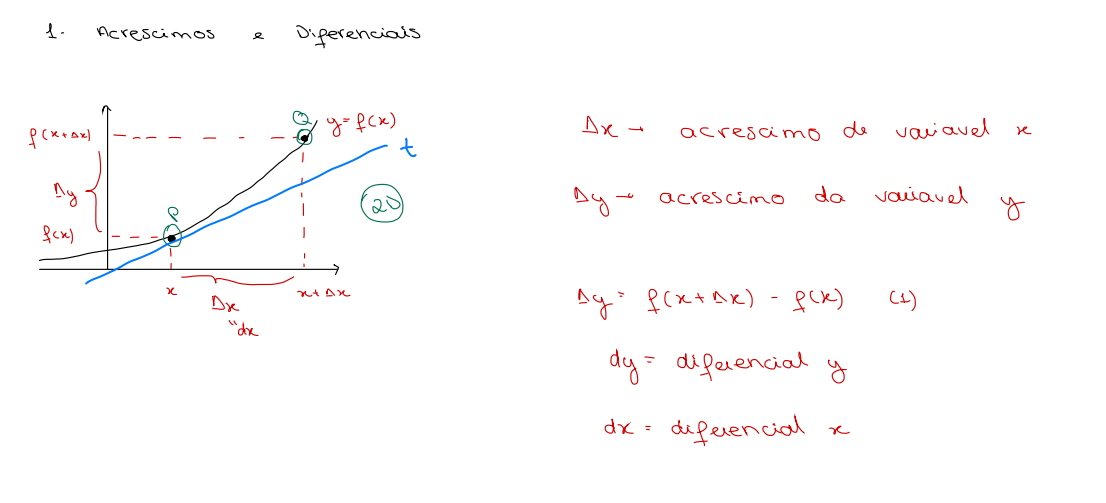 1. Acrescimos e Diferenciais
Q
y = f(x)
f(x+Δx)
t
Δy
P
2D
f(x)
x
x+Δx
Δx
"dx
Δx → acrescimo de variavel x
Δy → acrescimo da variavel y
Δy = f(x+Δx) - f(x) (1)
dy = diferencial y
dx = diferencial x